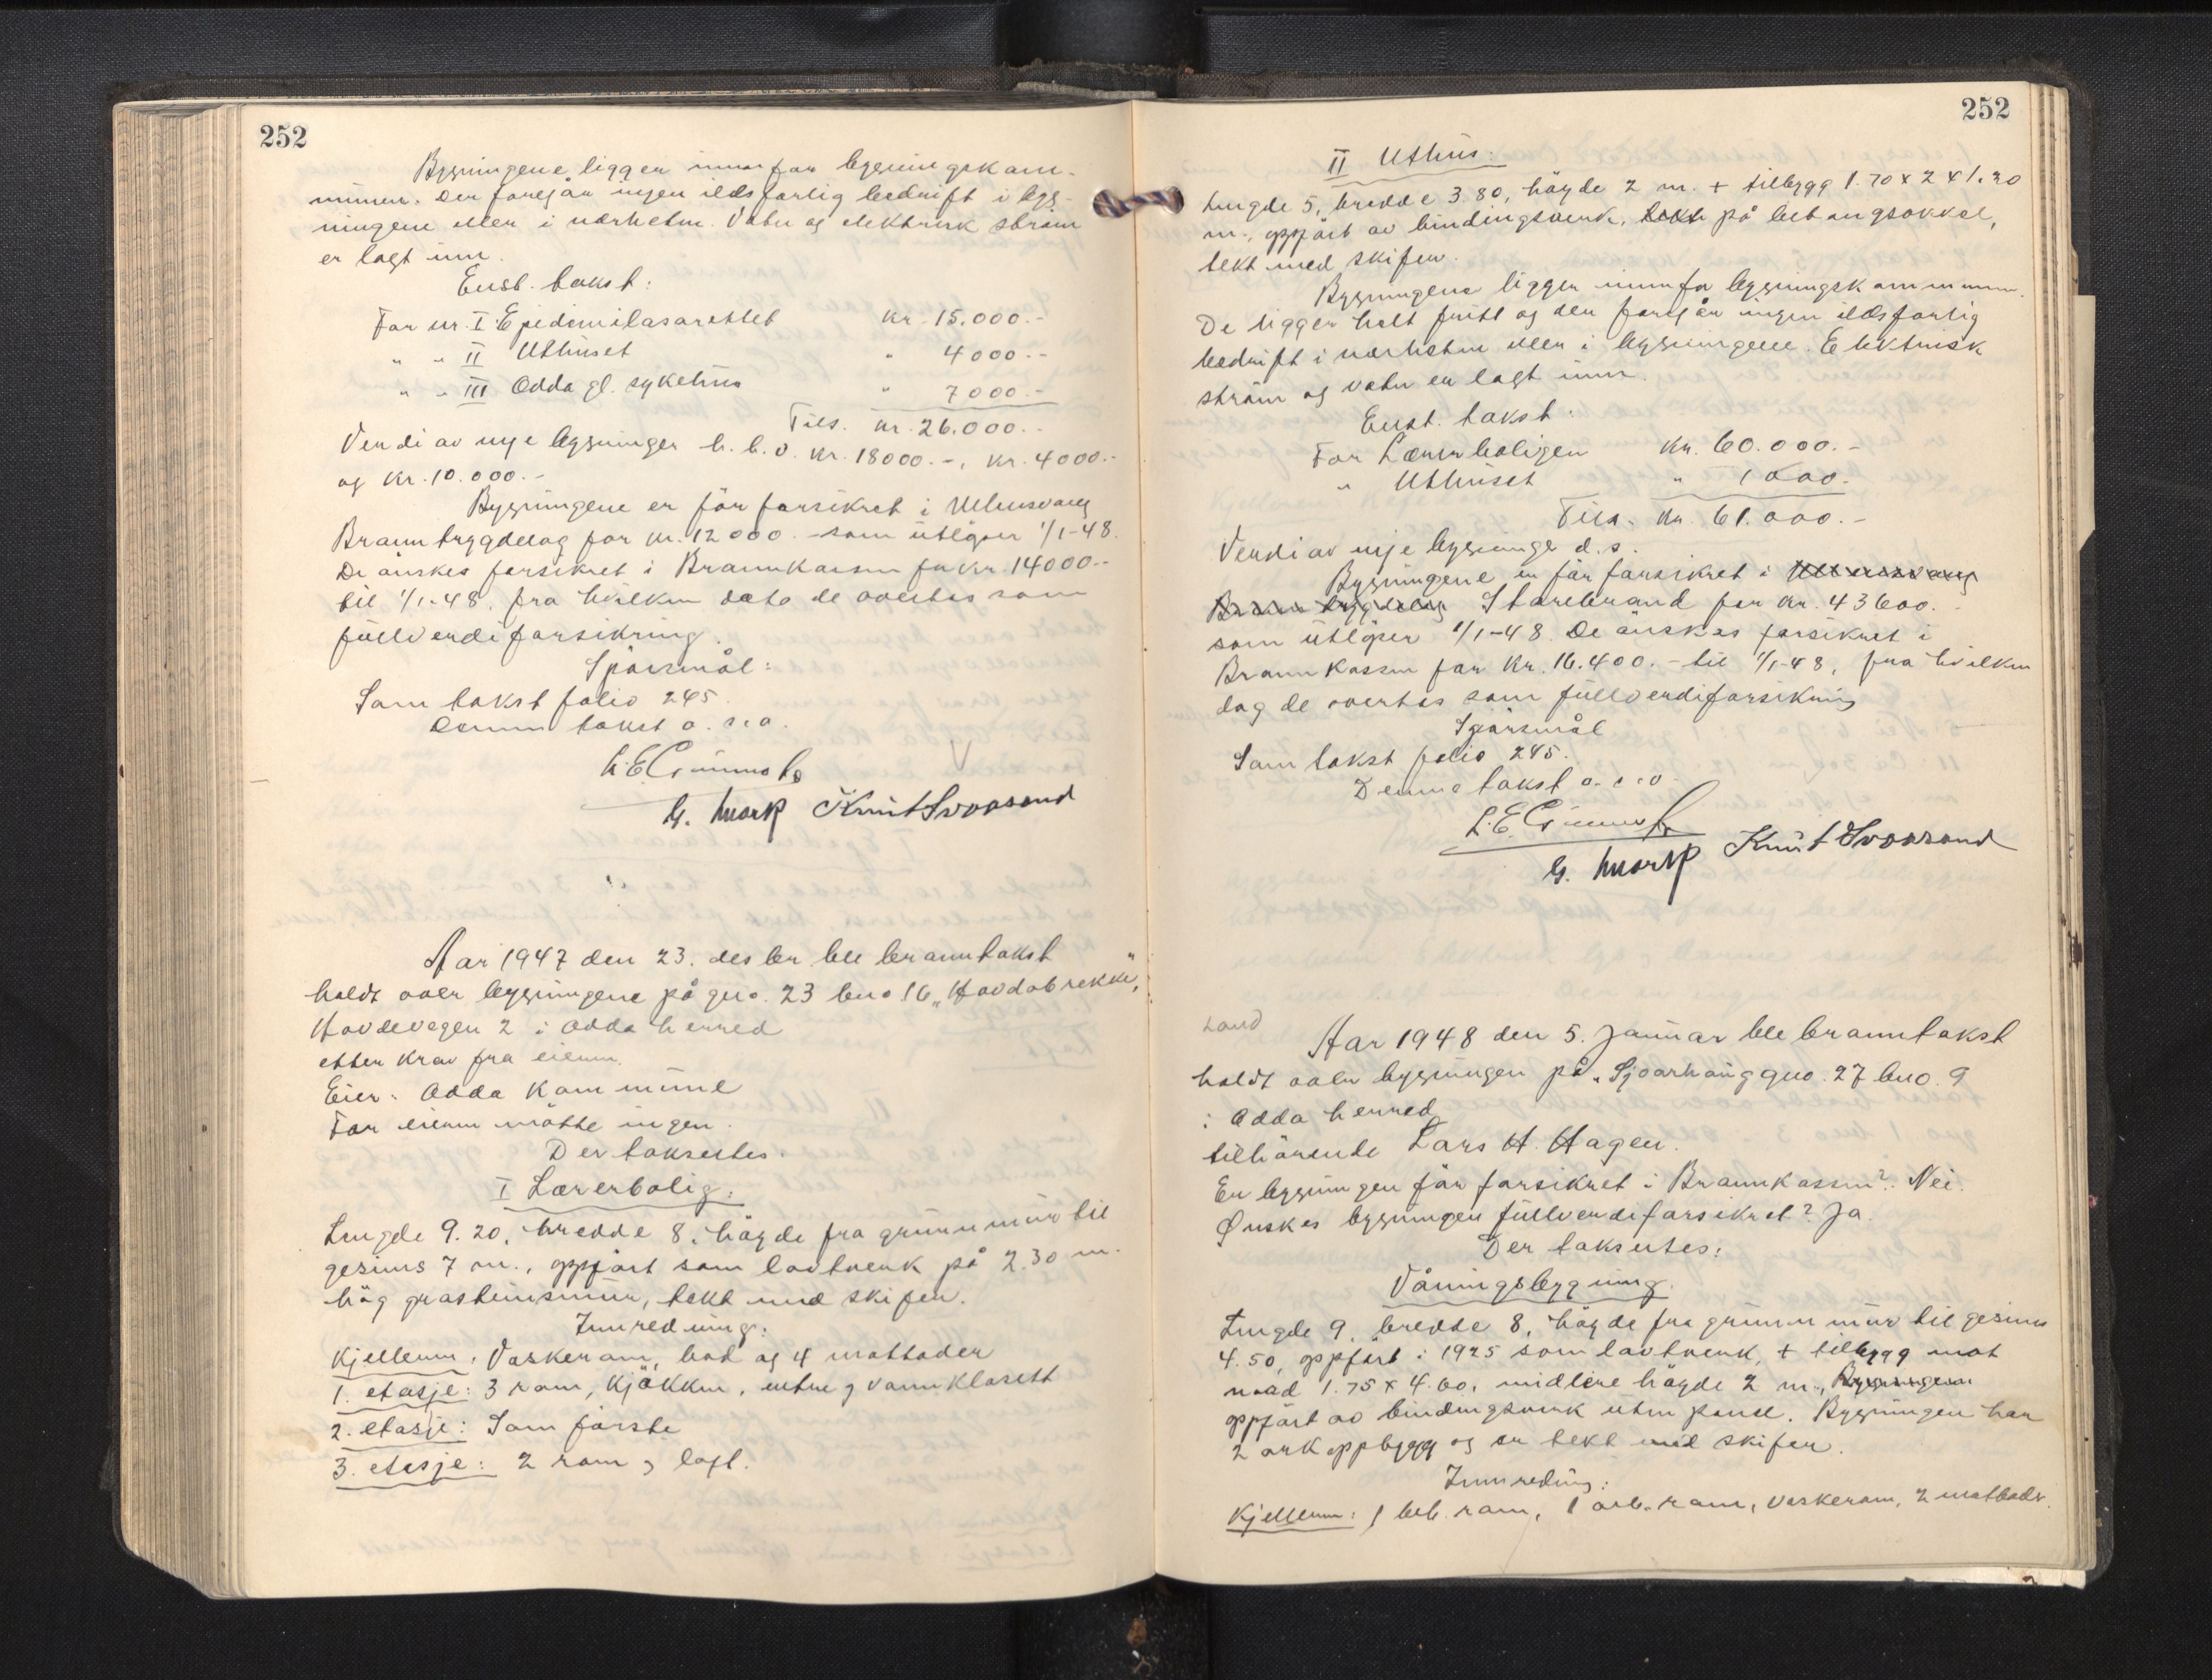 252
Bygningene ligger innafor bygningskom-
munen. Der foregår ingen ildsfarlig bedrift i byg-
ningene eller i nærheten. Vatn og elektrisk ström
er lagt inn.
Enst. takst:
For nr. I Epidemilasarettet kr. 15.000.-
" " II Uthuset " 4000.-
" " III Odda gl. sykehus " 7000.-
Tils. kr. 26.000.-
Verdi av nye bygninger h.h.v. kr. 18000.-, kr. 4000.-
og kr. 10.000.-
Bygningene er för forsikret i Ullensvang
Brannbygdelag for kr. 12000.- som utlöper 1/1-48.
De önskes forsikret i Brannkassen for kr. 14000.-
til 1/1-48, fra hvilken dato de overtas som
fullverdiforsikring.
Spörsmål:
Som takst folio 245.
Denne takst o.s.v.
G. Mork Knut Svoasand
Aar 1947 den 23. des br ble branntakst
holdt over bygningene på gno. 23 bno 16 „Hovdabrekke",
Hovdevegen 2 i Odda herred
etter krav fra eieren.
Eier: Odda Kommune
For eieren møtte ingen.
Der taksertes:
I Lærerbolig:
Lengde 9.20, bredde 8, högde fra grunnmur til
gesims 7 m., oppfört som lavtverk på 2.30 m.
hög gråsteinsmur, tekt med skifer.
Innredning:
Kjelleren: Vaskerom, bad og 4 matboder
1. etasje: 3 rom, kjökken, entre og vannklosett
2. etasje: Som förste
3. etasje: 2 rom og loft.
252
II Uthus:
Lengde 5, bredde 3.80, högde 2 m. + tilbygg 1.70 x 2 x 1.20
m., oppfört av bindingsverk, tekt på betongsokkel,
tekt med skifer.
Bygningene ligger innafor bygningskommunen.
De ligger helt fritt og der foregår ingen ildsfarlig
bedrift i nærheten eller i bygningene. Elektrisk
ström og vatn er lagt inn.
Enst. takst:
For Lærerboligen kr. 60.000.-
" Uthuset " 1000.-
Tils. kr. 61.000.-
Verdi av nye bygninger d.s.
Bygningene er för forsikret i Ullensvang
Brannbygdelag Storebrand for kr. 43600.-
som utlöper 1/1-48. De önskes forsikret i
Brannkassen for kr. 16.400.- til 1/1-48, fra hvilken
dag de overtas som fullverdiforsikring
Spörsmål
Som takst folio 245.
Denne takst o.s.v.
G. Mork Knut Svoasand
Land
Aar 1948 den 5. Januar ble branntakst
holdt over bygningen på „Sjoarhaug gno. 27 bno. 9
i Odda herred
tilhörende Lars H. Hagen.
Er bygningen för forsikret i Brannkassen? Nei.
Ønskes bygningen fullverdiforsikret? Ja.
Der taksertes:
Våningsbygning.
Lengde 9, bredde 8, högde fra grunnmur til gesims
4.50, oppfört i 1925 som lavtverk, + tilbygg mot
nord 1.75 x 4.60, midlere högde 2 m., Bygningen
oppfört av bindingsverk uten panel. Bygningen har
2 arkoppbygg og er tekt med skifer.
Innredning:
Kjelleren: 1 beb. rom, 1 arb. rom, vaskerom, 2 matboder.